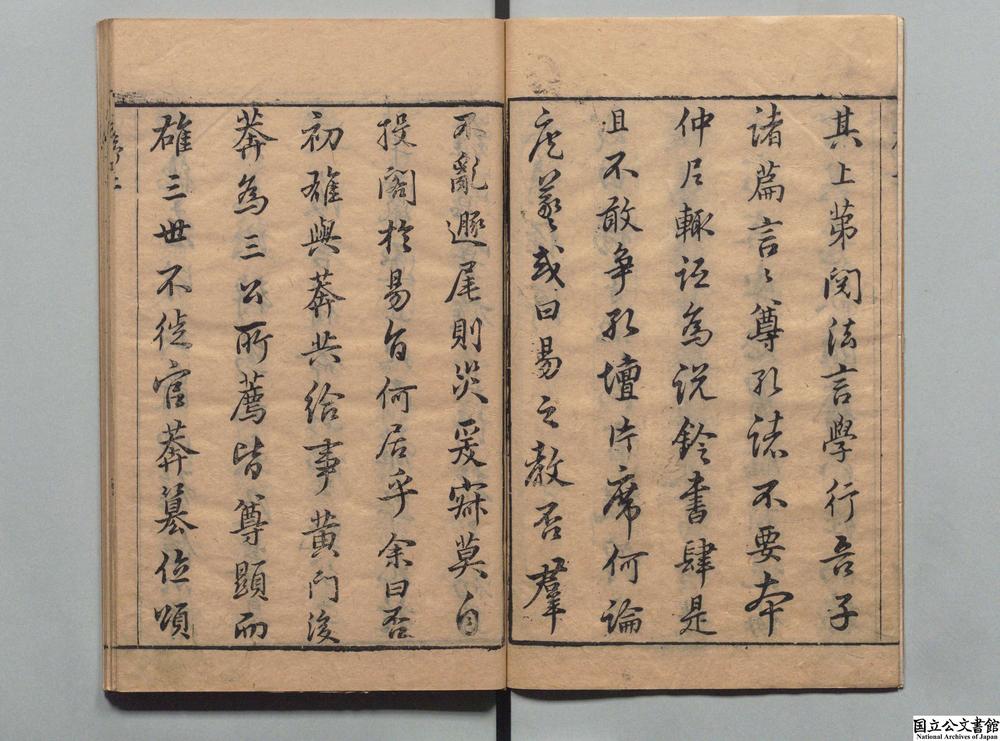 其上第閱法言學行吾子
諸篇言〻尊孔諸不要本
仲尼輒詆為説鈴書肆是
且不敢爭孔壇片席何論
庖羲或曰易之教否羣
不亂遯尾則災爰寂莫自
投閣於易旨何居乎余曰否
初雄與莽共給事黄門後
莽為三公所薦皆尊顯而
雄三世不徙官莽簒位頌
国立公文書館
National Archives of Japan